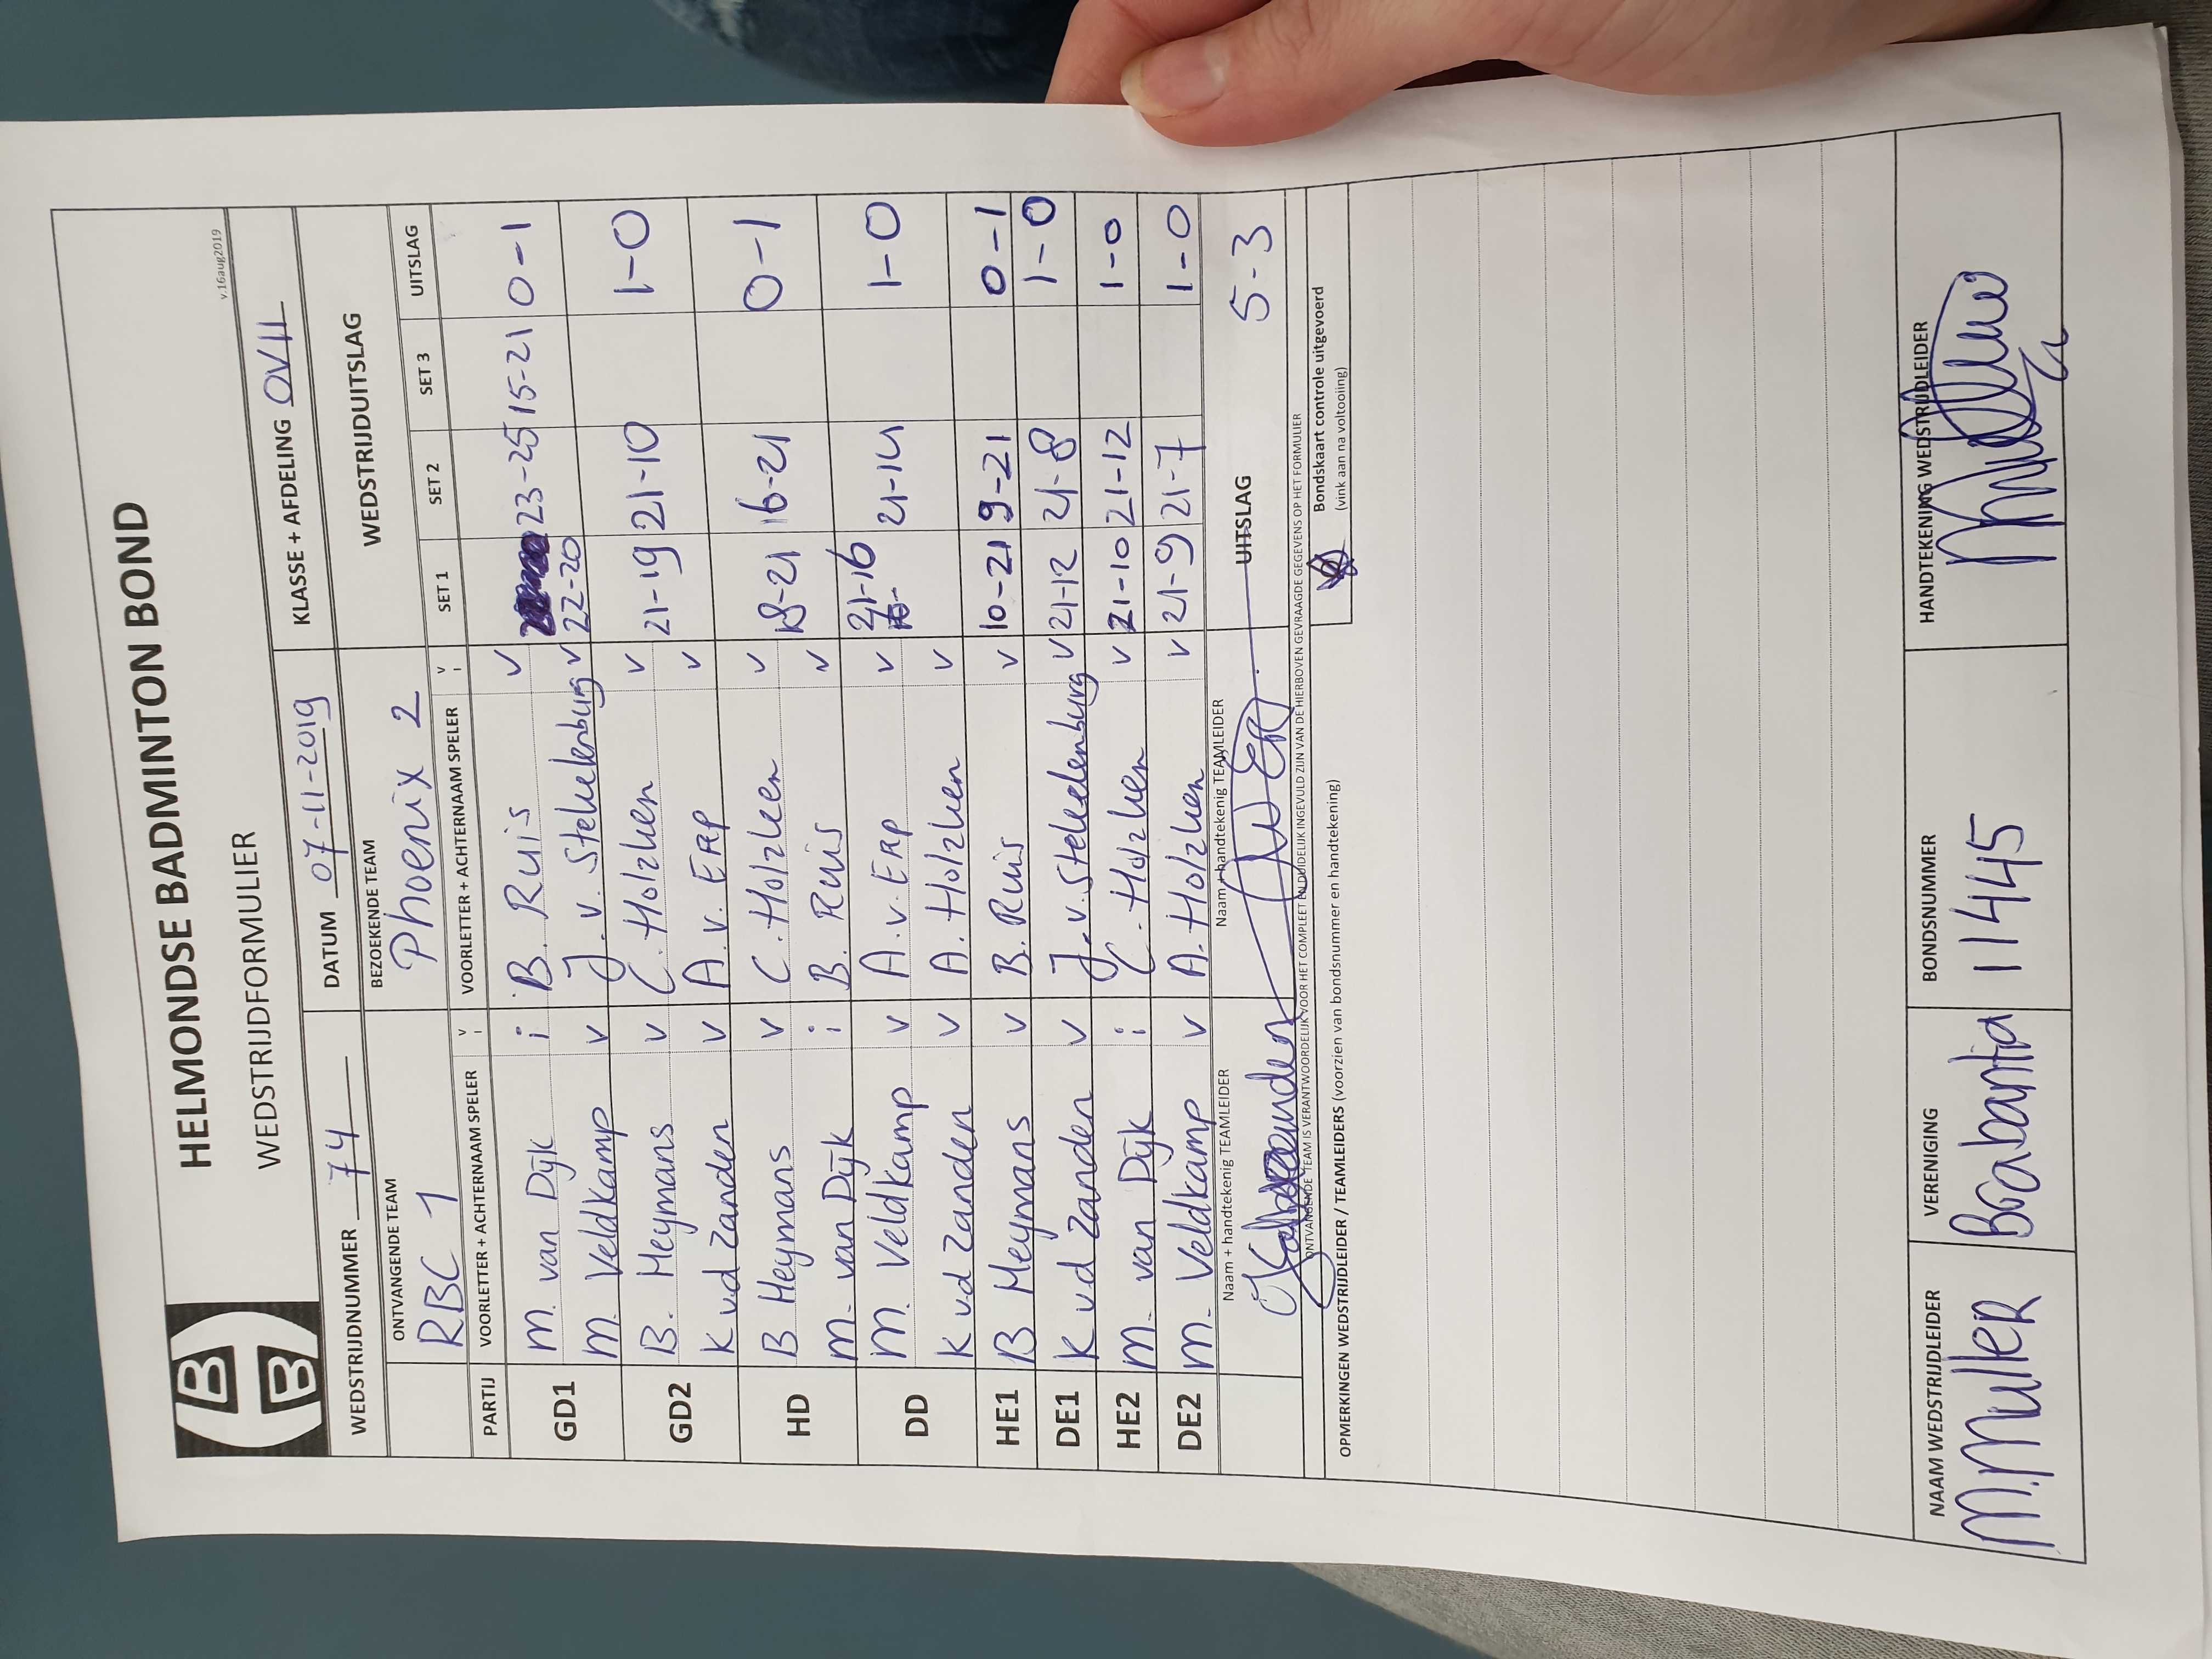 HELMONDSE BADMINTON BOND
WEDSTRIJDFORMULIER
v.16aug2019
WEDSTRIJDNUMMER 74 DATUM 07-11-2019 KLASSE + AFDELING OVII
ONTVANGENDE TEAM BEZOEKENDE TEAM WEDSTRIJDUITSLAG
RBC 1 Phoenix 2
PARTIJ VOORLETTER + ACHTERNAAM SPELER V i VOORLETTER + ACHTERNAAM SPELER V i SET 1 SET 2 SET 3 UITSLAG
GD1 M. van Dijk i B. Ruis v 23-25 15-21 0-1
M. Veldkamp v J. v. Stekelenburg v 22-20
GD2 B. Heymans v C. Holzken v 21-19 21-10 1-0
K vd Zanden v A. v. ERP v
HD B Heymans v C. Holzken v 18-21 16-21 0-1
M. van Dijk i B. Ruis v
DD M. Veldkamp v A. v. ERP v 21-16 21-14 1-0
K vd Zanden v A. Holzken v
HE1 B Heymans v B. Ruis v 10-21 9-21 0-1
DE1 K vd Zanden v J. v. Stekelenburg v 21-12 21-8 1-0
HE2 M. van Dijk i C. Holzken v 21-10 21-12 1-0
DE2 M. Veldkamp v A. Holzken v 21-9 21-7 1-0
Naam + handtekenig TEAMLEIDER Naam + handtekenig TEAMLEIDER UITSLAG 5-3
ONTVANGENDE TEAM IS VERANTWOORDELIJK VOOR HET COMPLEET EN DUIDELIJK INGEVULD ZIJN VAN DE HIERBOVEN GEVRAAGDE GEGEVENS OP HET FORMULIER
OPMERKINGEN WEDSTRIJDLEIDER / TEAMLEIDERS (voorzien van bondsnummer en handtekening)
Bondskaart controle uitgevoerd
(vink aan na voltooiing)
NAAM WEDSTRIJDLEIDER VERENIGING BONDSNUMMER HANDTEKENING WEDSTRIJDLEIDER
M. Muller Brabantia 11445